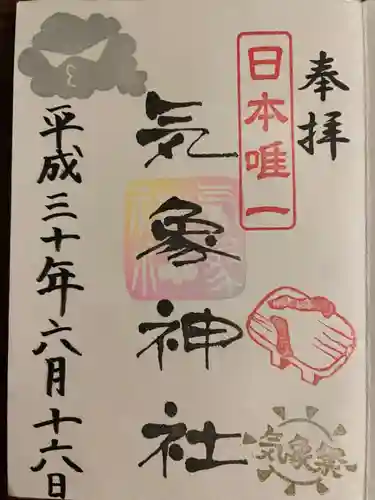 奉拝
日本唯一
気象祭
気象神社
平成三十年六月十六日